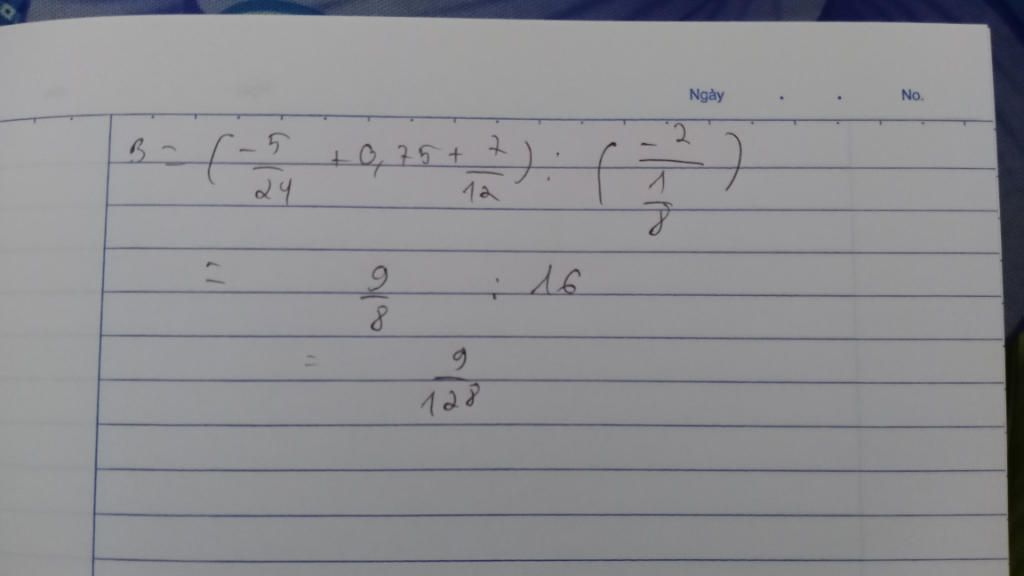 Ngày . . No.
B = (-5/24 + 0,75 + 7/12) : (-2/(1/8))
= 9/8 : 16
= 9/128